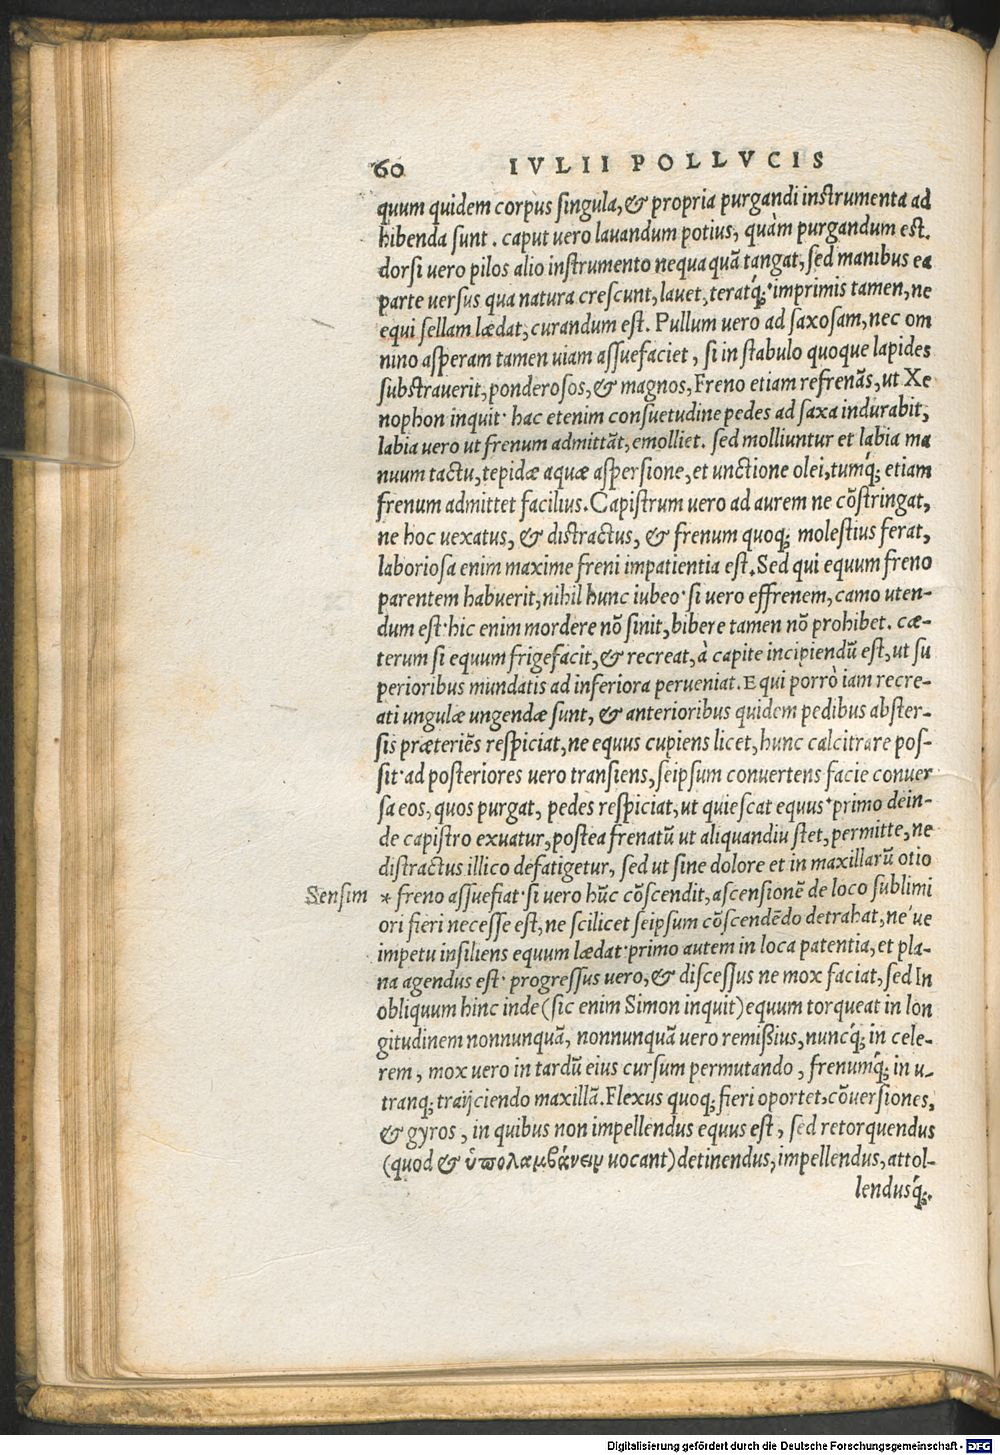 60 IVLII POLLVCIS
quum quidem corpus singula, & propria purgandi instrumenta ad
hibenda sunt. caput vero lauandum potius, quàm purgandum est.
dorsi vero pilos alio instrumento nequaquã tangat, sed manibus ea
parte uersus qua natura crescunt, lauet, teratq́; imprimis tamen, ne
equi sellam lædat, curandum est. Pullum vero ad saxosam, nec om
nino asperam tamen uiam assuefaciet, si in stabulo quoque lapides
substrauerit, ponderosos, & magnos, Freno etiam refrenãs, ut Xe
nophon inquit· hac etenim consuetudine pedes ad saxa indurabit,
labia uero ut frenum admittãt, emolliet. sed molliuntur et labia ma
nuum tactu, tepidæ aquæ aspersione, et unctione olei, tumq́; etiam
frenum admittet facilius. Capistrum uero ad aurem ne cõstringat,
ne hoc uexatus, & distractus, & frenum quoq; molestius ferat,
laboriosa enim maxime freni impatientia est. Sed qui equum freno
parentem habuerit, nihil hunc iubeo· si uero effrenem, camo uten-
dum est· hic enim mordere nõ sinit, bibere tamen nõ prohibet. cæ-
terum si equum frigefacit, & recreat, à capite incipiendũ est, ut su
perioribus mundatis ad inferiora perueniat. Equi porrò iam recre-
ati ungulæ ungendæ sunt, & anterioribus quidem pedibus abster-
sis præteriẽs respiciat, ne equus cupiens licet, hunc calcitrare pos-
sit· ad posteriores uero transiens, seipsum conuertens facie conuer
sa eos, quos purgat, pedes respiciat, ut quiescat equus· primo dein-
de capistro exuatur, postea frenatũ ut aliquandiu stet, permitte, ne
distractus illico defatigetur, sed ut sine dolore et in maxillarũ otio
Sensim * freno assuefiat· si uero hũc cõscendit, ascensionẽ de loco sublimi
ori fieri necesse est, ne scilicet seipsum cõscendẽdo detrahat, ne've
impetu insiliens equum lædat· primo autem in loca patentia, et pla-
na agendus est· progressus uero, & discessus ne mox faciat, sed In
obliquum hinc inde (sic enim Simon inquit) equum torqueat in lon
gitudinem nonnunquã, nonnunquã uero remißius, nuncq́; in cele-
rem, mox uero in tardũ eius cursum permutando, frenumq́; in u-
tranq; traijciendo maxillã. Flexus quoq; fieri oportet, cõuersiones,
& gyros, in quibus non impellendus equus est, sed retorquendus
(quod & ὑπολαμβάνειν uocant) detinendus, impellendus, attol-
lendusq́;.
Digitalisierung gefördert durch die Deutsche Forschungsgemeinschaft - DFG